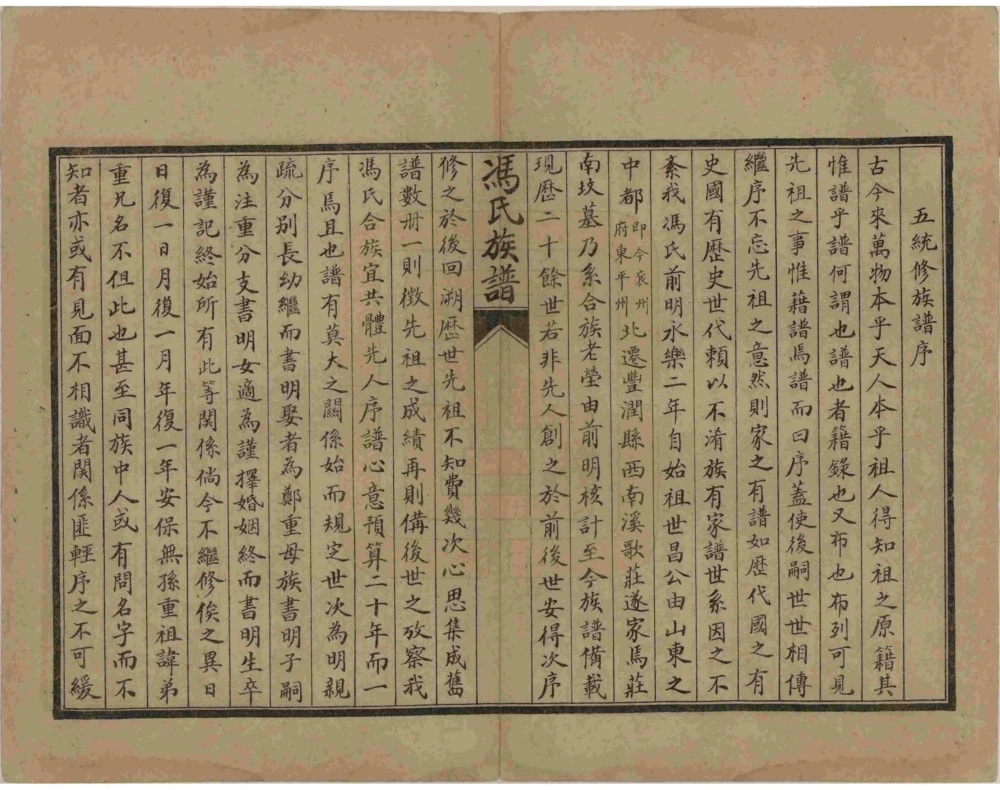 五統修族譜序
古今來萬物本乎天人本乎祖人得知祖之原籍其
惟譜乎譜何謂也譜也者籍錄也又布也布列可見
先祖之事惟籍譜焉譜而曰序蓋使後嗣世世相傳
繼序不忘先祖之意然則家之有譜如歷代國之有
史國有歷史世代賴以不淆族有家譜世系因之不
紊我馮氏前明永樂二年自始祖世昌公由山東之
中都即今袞州府東平州北遷豐潤縣西南溪歌莊遂家焉莊
南坟墓乃系合族老塋由前明核計至今族譜備載
現歷二十餘世若非先人創之於前後世安得次序
馮氏族譜
修之於後回溯歷世先祖不知費幾次心思集成舊
譜數册一則徵先祖之成績再則備後世之攷察我
馮氏合族宜共體先人序譜心意預算二十年而一
序焉且也譜有莫大之關係始而規定世次為明親
疏分別長幼繼而書明娶者為鄭重母族書明子嗣
為注重分支書明女適為謹擇婚姻終而書明生卒
為謹記終始所有此等関係倘今不繼修俟之異日
日復一日月復一月年復一年安保無孫重祖諱弟
重兄名不但此也甚至同族中人或有問名字而不
知者亦或有見面不相識者関係匪輕序之不可緩